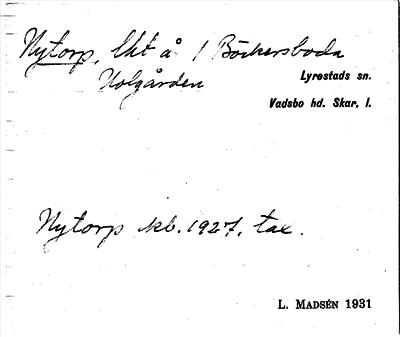 Nytorp, lht å 1 Böckersboda
Holgården
Lyrestads sn.
Vadsbo hd. Skar. l.
Nytorp kb. 1927, tax.
L. MADSÉN 1931